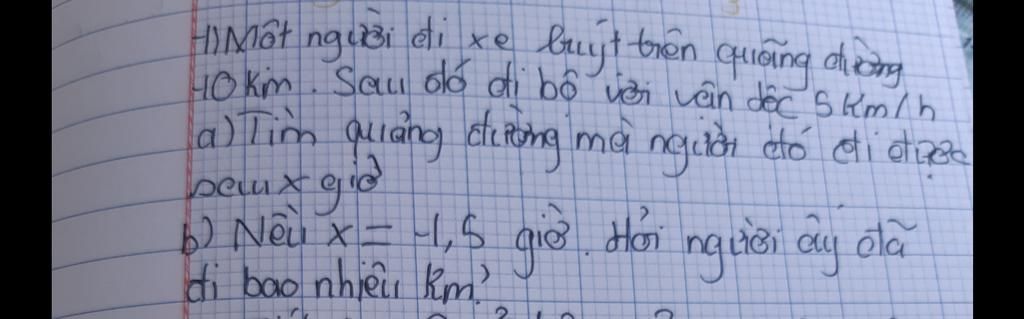 1) Một người đi xe buýt trên quãng đường
10 km. Sau đó đi bộ với vận dốc 5 km/h
a) Tính quãng đường mà người đó đi được
sau x giờ
b) Nếu x = 1,5 giờ. Hỏi người ấy đã
đi bao nhiêu km?